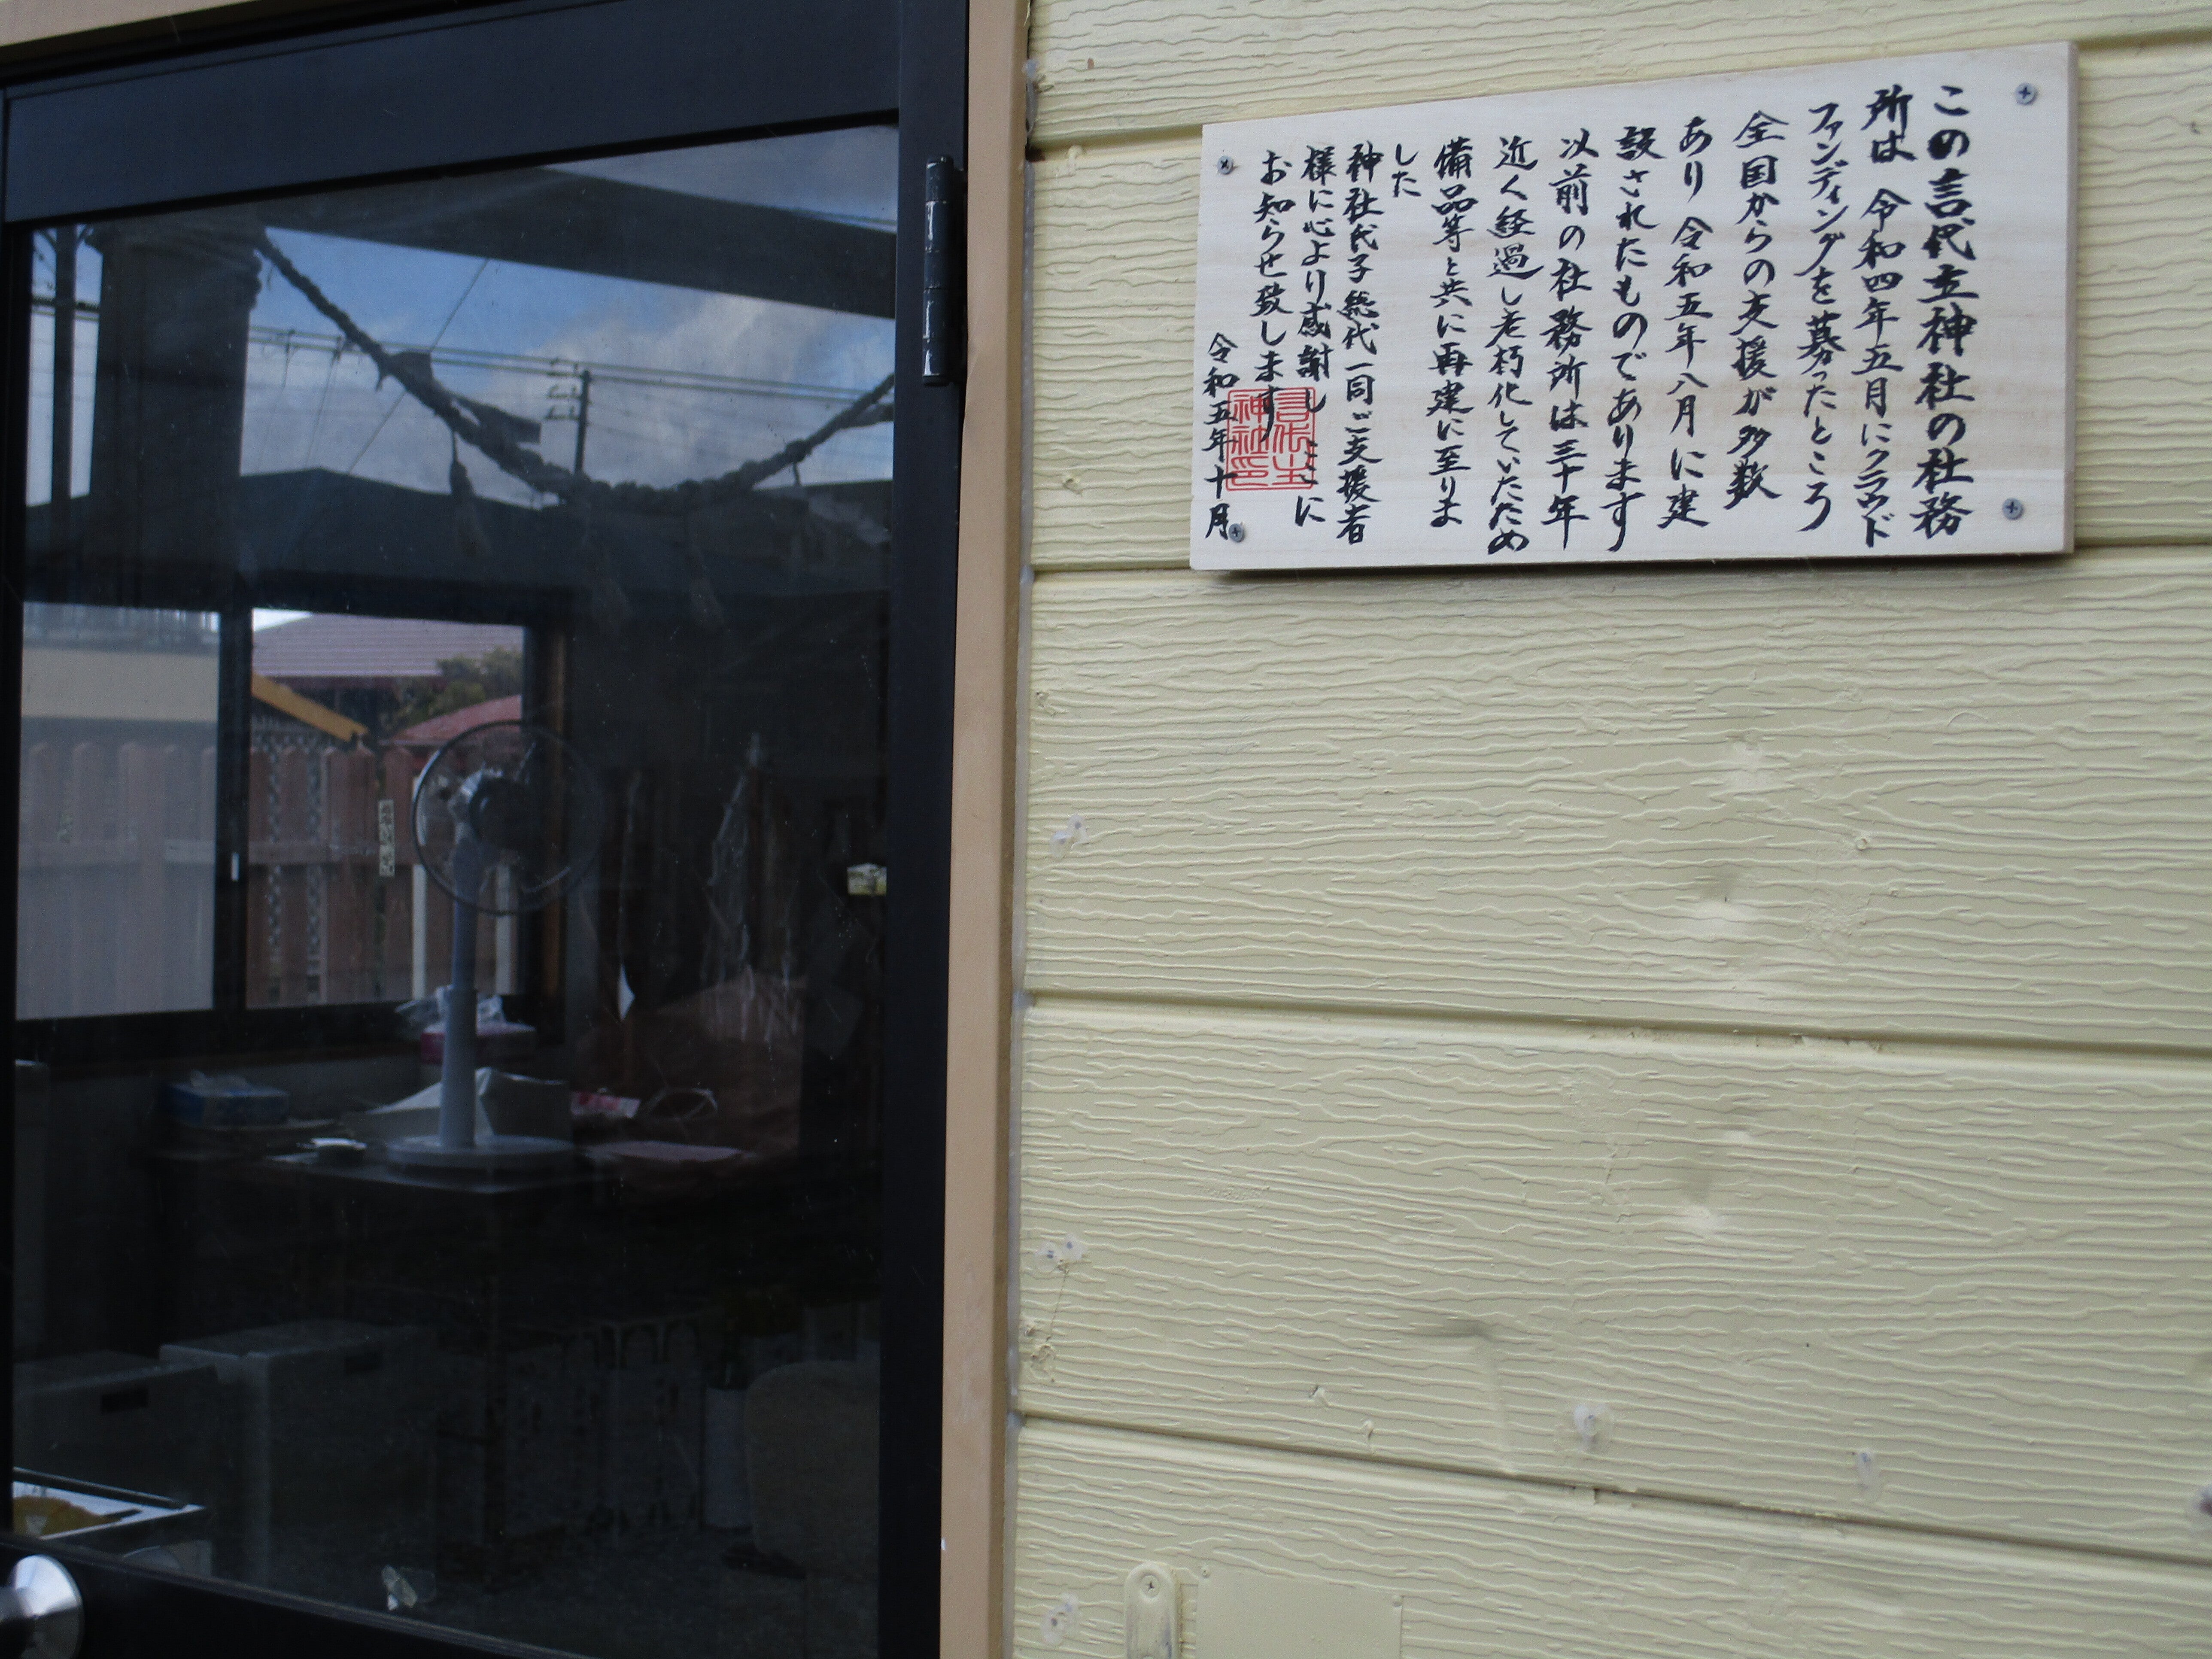 この言代主神社の社務
所は 令和四年五月にクラウド
ファンディングを募ったところ
全国からの支援が多数
あり 令和五年八月に建
設されたものであります
以前の社務所は三十年
近く経過し老朽化していたため
備品等と共に再建に至りま
した
神社氏子総代一同ご支援者
様に心より感謝しここに
お知らせ致します
令和五年十月
言代主
神社印